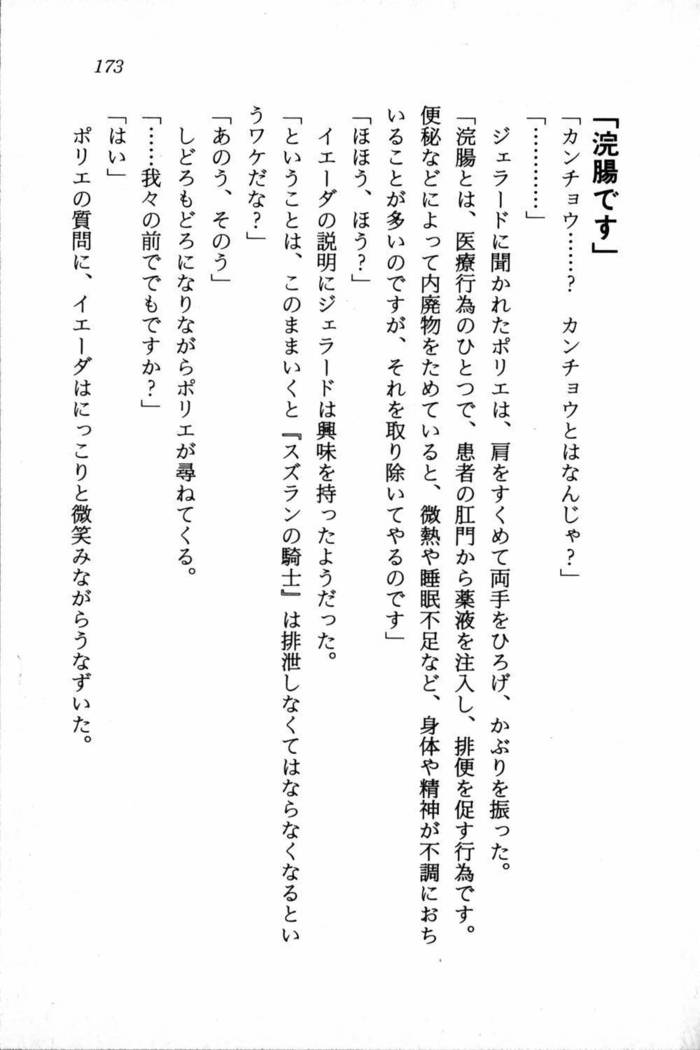 173
「浣腸です」
「カンチョウ……? カンチョウとはなんじゃ?」
「…………」
ジェラードに聞かれたポリエは、肩をすくめて両手をひろげ、かぶりを振った。
「浣腸とは、医療行為のひとつで、患者の肛門から薬液を注入し、排便を促す行為です。
便秘などによって内廃物をためていると、微熱や睡眠不足など、身体や精神が不調におち
いることが多いのですが、それを取り除いてやるのです」
「ほほう、ほう?」
イエーダの説明にジェラードは興味を持ったようだった。
「ということは、このままいくと『スズランの騎士』は排泄しなくてはならなくなるとい
うワケだな?」
「あのう、そのう」
しどろもどろになりながらポリエが尋ねてくる。
「……我々の前ででもですか?」
「はい」
ポリエの質問に、イエーダはにっこりと微笑みながらうなずいた。